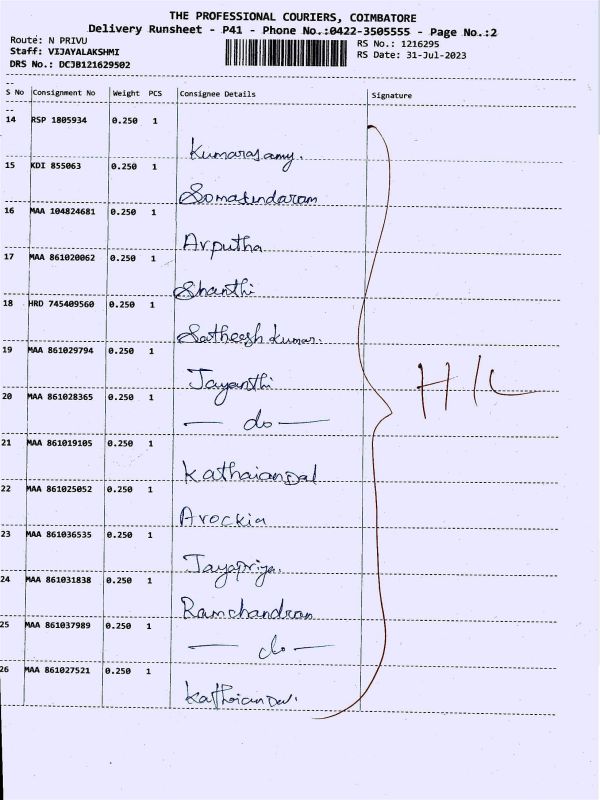 THE PROFESSIONAL COURIERS, COIMBATORE
Delivery Runsheet - P41 - Phone No.:0422-3505555 - Page No.:2
Route: N PRIVU
Staff: VIJAYALAKSHMI
DRS No.: DCJB121629502
RS No.: 1216295
RS Date: 31-Jul-2023
S No Consignment No Weight PCS Consignee Details Signature
14 RSP 1805934 0.250 1
Kumarasamy.
15 KDI 855063 0.250 1
Somasundaram
16 MAA 104824681 0.250 1
Arputha
17 MAA 861020062 0.250 1
Shanthi
18 HRD 745409560 0.250 1
Satheesh Kumar.
19 MAA 861029794 0.250 1
Jayanthi
20 MAA 861028365 0.250 1
— do —
21 MAA 861019105 0.250 1
Kathaiandal
22 MAA 861025052 0.250 1
Arockia
23 MAA 861036535 0.250 1
Jayapriya.
24 MAA 861031838 0.250 1
Ramchandran
25 MAA 861037989 0.250 1
— do —
26 MAA 861027521 0.250 1